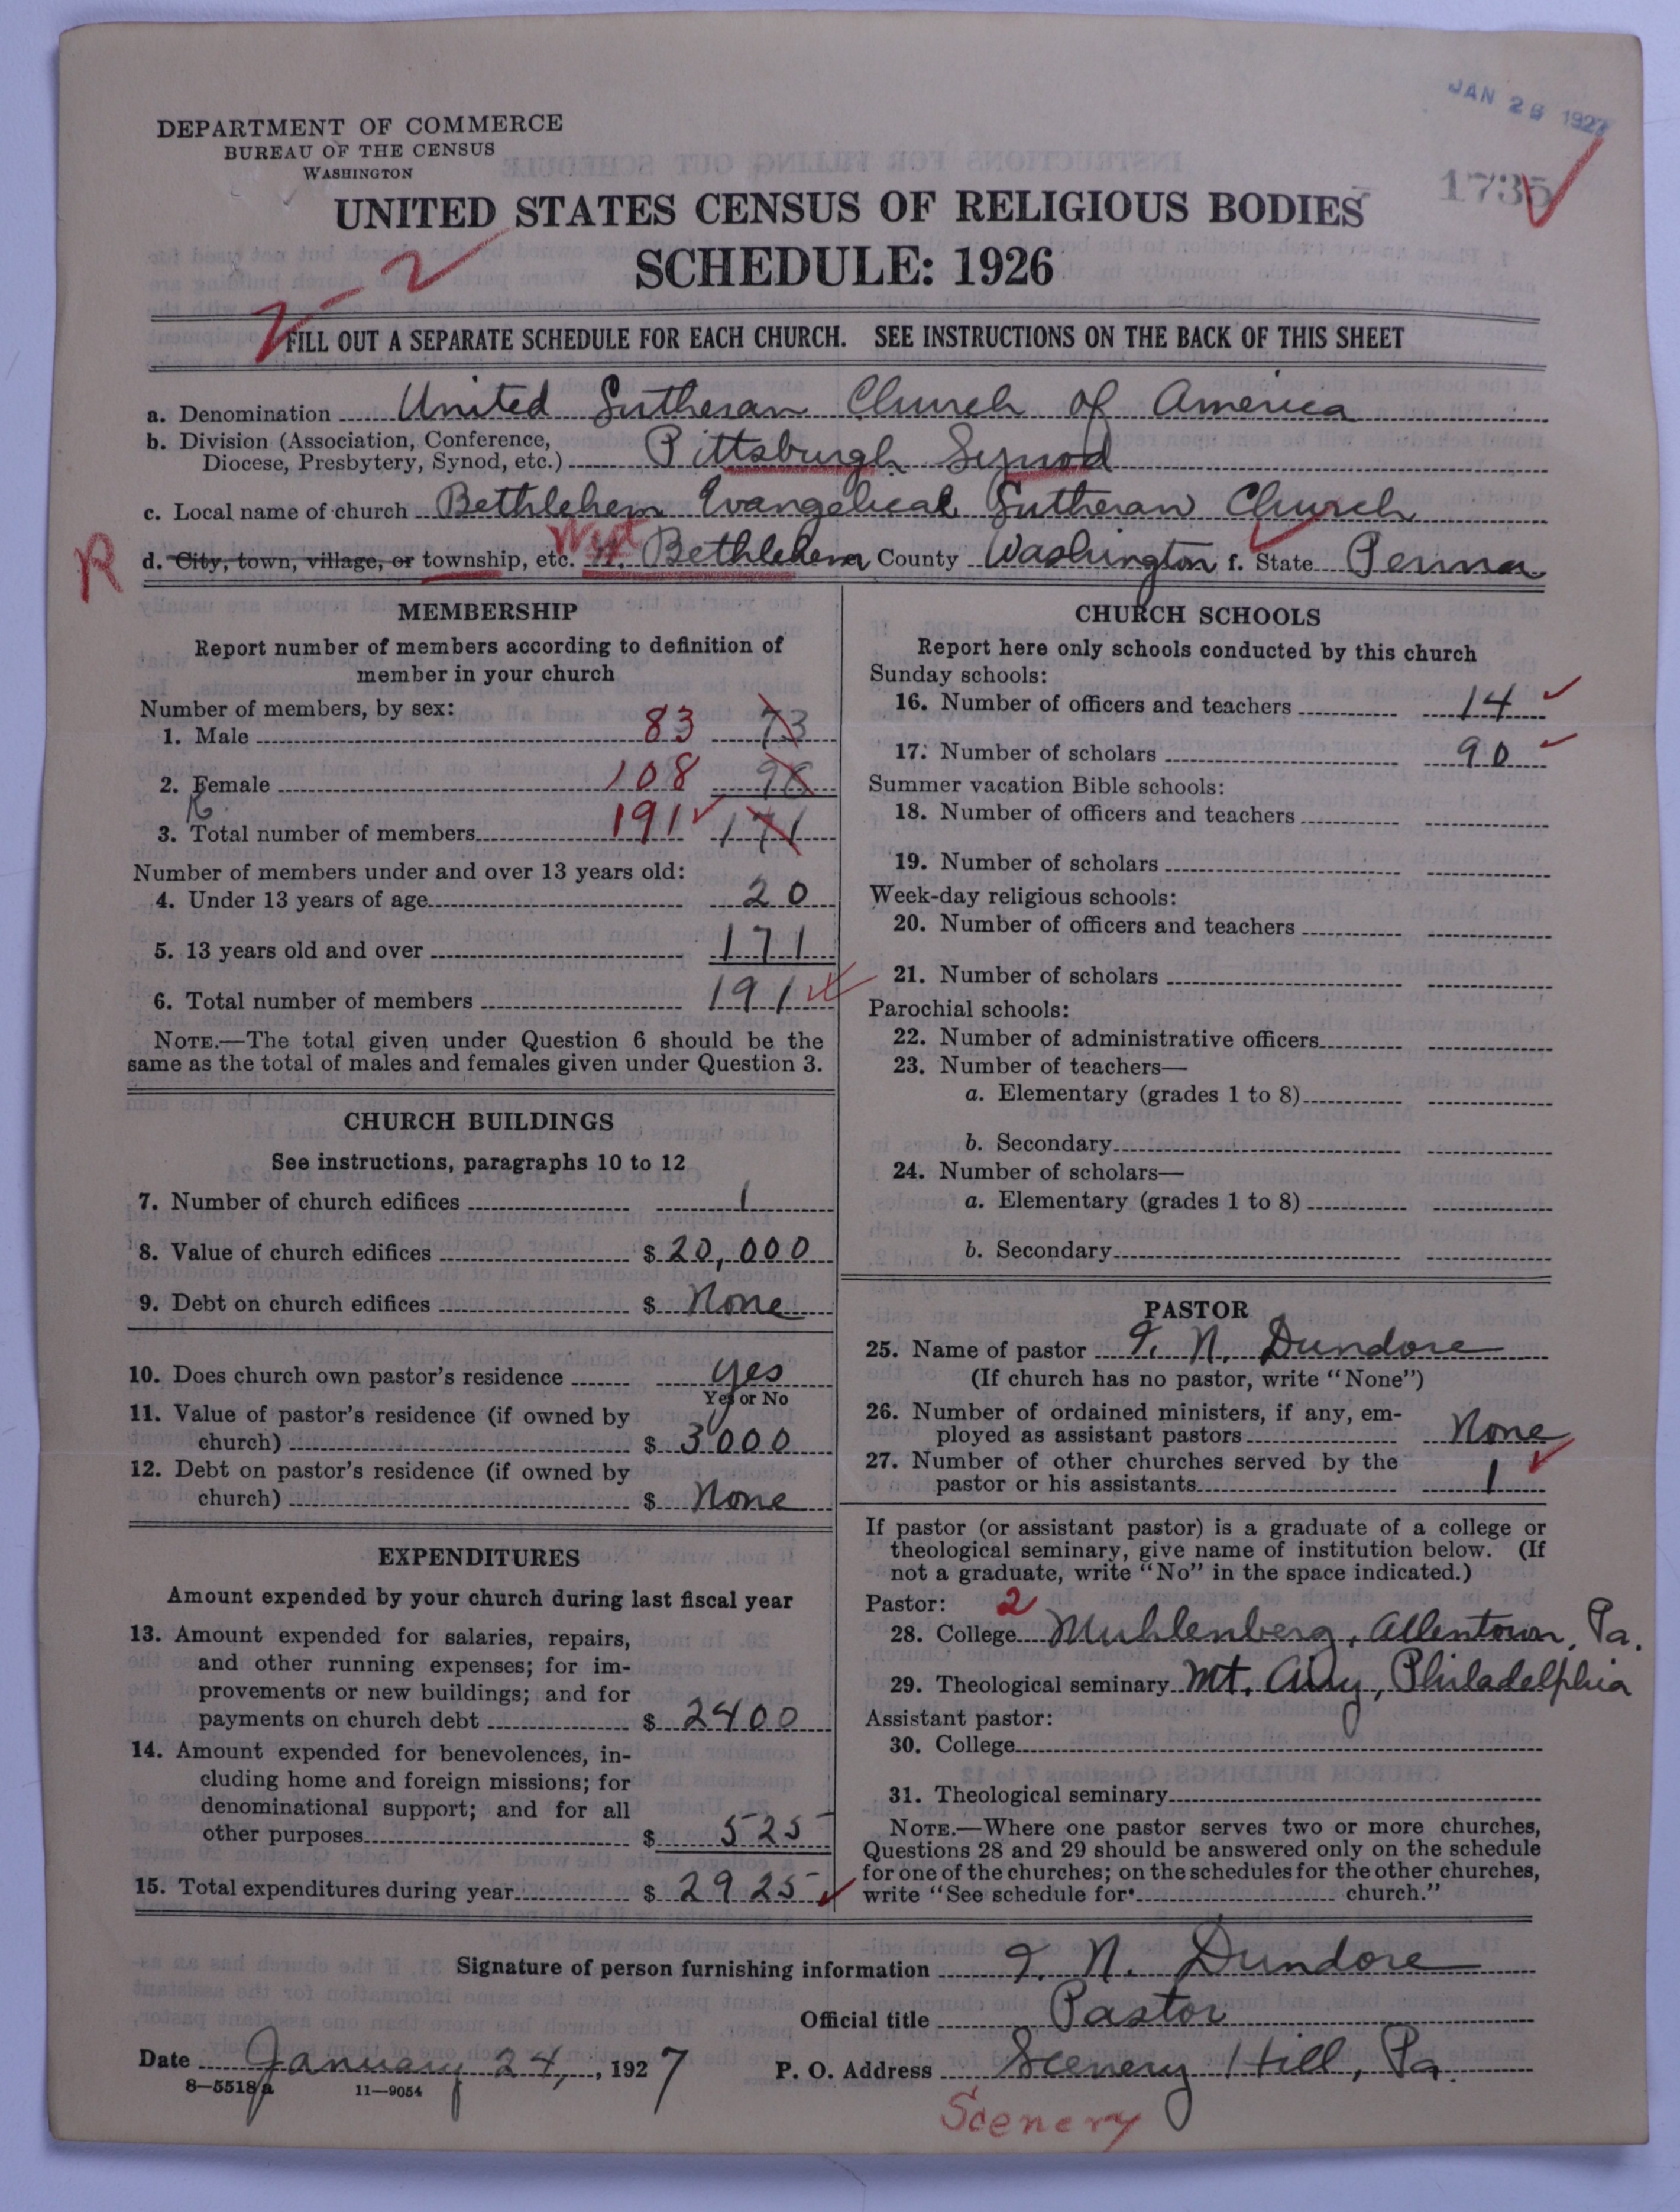 JAN 26 1927
1735
DEPARTMENT OF COMMERCE
BUREAU OF THE CENSUS
WASHINGTON
UNITED STATES CENSUS OF RELIGIOUS BODIES
SCHEDULE: 1926
2-2
FILL OUT A SEPARATE SCHEDULE FOR EACH CHURCH. SEE INSTRUCTIONS ON THE BACK OF THIS SHEET
a. Denomination United Lutheran Church of America
b. Division (Association, Conference,
Diocese, Presbytery, Synod, etc.) Pittsburgh Synod
c. Local name of church Bethlehem Evangelical Lutheran Church
R d. City, town, village, or township, etc. West W. Bethlehem County Washington f. State Penna
MEMBERSHIP
Report number of members according to definition of
member in your church
Number of members, by sex:
1. Male 83 73
2. Female 108 98
3. Total number of members 191 171
Number of members under and over 13 years old:
4. Under 13 years of age 20
5. 13 years old and over 171
6. Total number of members 191
NOTE.—The total given under Question 6 should be the
same as the total of males and females given under Question 3.
CHURCH BUILDINGS
See instructions, paragraphs 10 to 12
7. Number of church edifices 1
8. Value of church edifices $ 20,000
9. Debt on church edifices $ None
10. Does church own pastor's residence yes
Yes or No
11. Value of pastor's residence (if owned by
church) $ 3000
12. Debt on pastor's residence (if owned by
church) $ None
EXPENDITURES
Amount expended by your church during last fiscal year
13. Amount expended for salaries, repairs,
and other running expenses; for im-
provements or new buildings; and for
payments on church debt $ 2400
14. Amount expended for benevolences, in-
cluding home and foreign missions; for
denominational support; and for all
other purposes $ 525
15. Total expenditures during year $ 2925
CHURCH SCHOOLS
Report here only schools conducted by this church
Sunday schools:
16. Number of officers and teachers 14
17. Number of scholars 90
Summer vacation Bible schools:
18. Number of officers and teachers
19. Number of scholars
Week-day religious schools:
20. Number of officers and teachers
21. Number of scholars
Parochial schools:
22. Number of administrative officers
23. Number of teachers—
a. Elementary (grades 1 to 8)
b. Secondary
24. Number of scholars—
a. Elementary (grades 1 to 8)
b. Secondary
PASTOR
25. Name of pastor I. N. Dundore
(If church has no pastor, write "None")
26. Number of ordained ministers, if any, em-
ployed as assistant pastors None
27. Number of other churches served by the
pastor or his assistants 1
If pastor (or assistant pastor) is a graduate of a college or
theological seminary, give name of institution below. (If
not a graduate, write "No" in the space indicated.)
Pastor: 2
28. College Muhlenberg, Allentown, Pa.
29. Theological seminary Mt. Airy, Philadelphia
Assistant pastor:
30. College
31. Theological seminary
NOTE.—Where one pastor serves two or more churches,
Questions 28 and 29 should be answered only on the schedule
for one of the churches; on the schedules for the other churches,
write "See schedule for church."
Signature of person furnishing information I. N. Dundore
Official title Pastor
Date January 24, 1927 P. O. Address Scenery Hill, Pa.
8—5518a 11—9054
Scenery